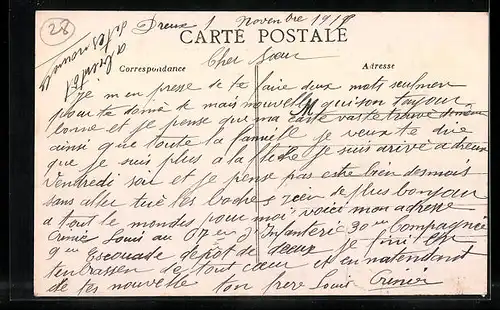 28
Dreux 1 Novembre 1918
CARTE POSTALE
Correspondance
Adresse
a bientot
de tes nouvel
Cher Sœur
Je m en presse de te faire deux mots seulmen
pour te dané de mais nouvelle qui son toujour
bonne et je pense que ma carte vas te trouvé de même
ainsi que toute la famille Je veux te dire
que je suis plus a la fleche je suis arrivé a dreux
Vendredi soir et je pense pas estre bien des mois
sans aller tué les boches rien de plus bonjour
a tout le mondes pour moi voici mon adresse
Crinié Louis au en 30 en Compagnie
9 en Escouade dépot de dreux je fini en
tenbrassen de tout cœur et en natendant
de tes nouvelle ton frere Louis Crinier